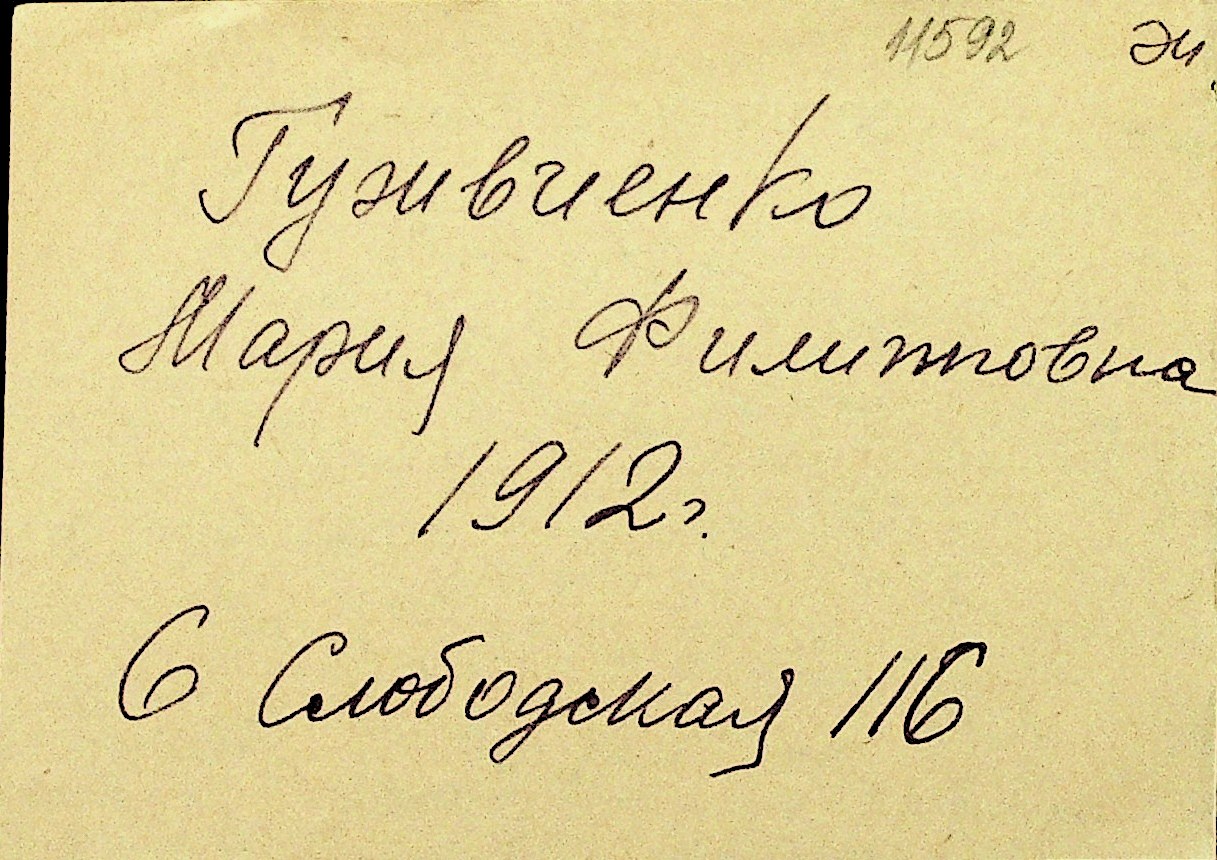 11592 Ж.
Гуживченко
Мария Филипповна
1912г.
6 Слободская 116